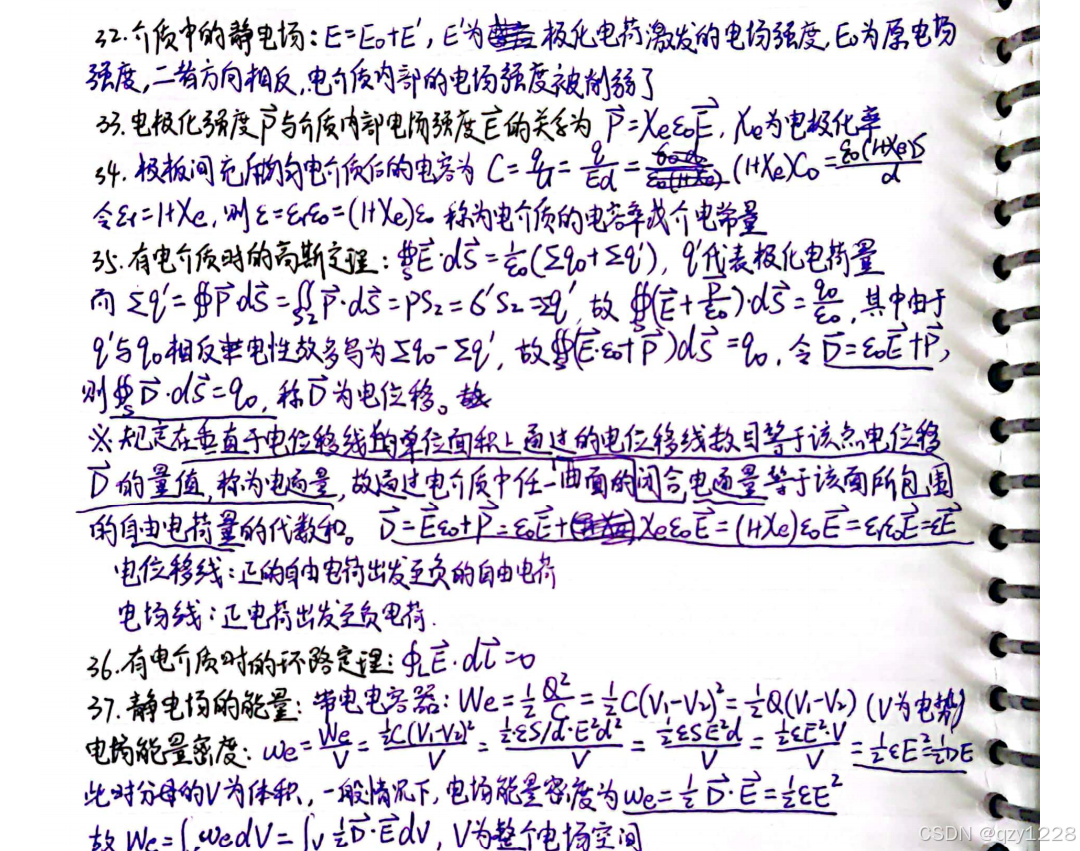 32.介质中的静电场：E=E₀+E′，E′为极化电荷激发的电场强度，E₀为原电场
强度，二者方向相反，电介质内部的电场强度被削弱了
33.电极化强度P⃗与介质内部电场强度E⃗的关系为 P⃗=χeε₀E⃗，χe为电极化率
34.极板间充满均匀电介质后的电容为 C=q/U=q/Ed=(1+χe)C₀=ε₀(1+χe)S/d
令εr=1+χe，则ε=εrε₀=(1+χe)ε₀ 称为电介质的电容率或介电常量
35.有电介质时的高斯定理：∯E⃗·dS⃗=1/ε₀(Σq₀+Σq′)，q′代表极化电荷量
而Σq′=∯P⃗·dS⃗=∬S₂P⃗·dS⃗=PS₂=σ′S₂=Σq′，故∯S(E⃗+P⃗/ε₀)·dS⃗=q₀/ε₀，其中由于
q′与q₀相反电性故多写为Σq₀-Σq′，故∯S(E⃗·ε₀+P⃗)dS⃗=q₀，令D⃗=ε₀E⃗+P⃗，
则∯S D⃗·dS⃗=q₀，称D⃗为电位移。
※规定在垂直于电位移线的单位面积上通过的电位移线数目等于该点电位移
D⃗的量值，称为电通量，故通过电介质中任一曲面的闭合电通量等于该面所包围
的自由电荷量的代数和。D⃗=E⃗ε₀+P⃗=ε₀E⃗+χeε₀E⃗=(1+χe)ε₀E⃗=εrε₀E⃗=εE⃗
电位移线：正的自由电荷出发至负的自由电荷
电场线：正电荷出发至负电荷.
36.有电介质时的环路定理：∮L E⃗·dl⃗=0
37.静电场的能量：带电电容器：We=½Q²/C=½C(V₁-V₂)²=½Q(V₁-V₂)(V为电势)
电场能量密度：we=We/V=½C(V₁-V₂)²/V=½·εS/d·E²d²/V=½εSE²d/V=½εE²·V/V=½εE²=½DE
此时分母的V为体积，一般情况下，电场能量密度为we=½D⃗·E⃗=½εE²
故We=∫v we dV=∫v ½D⃗·E⃗dV，V为整个电场空间
CSDN @qzy1228